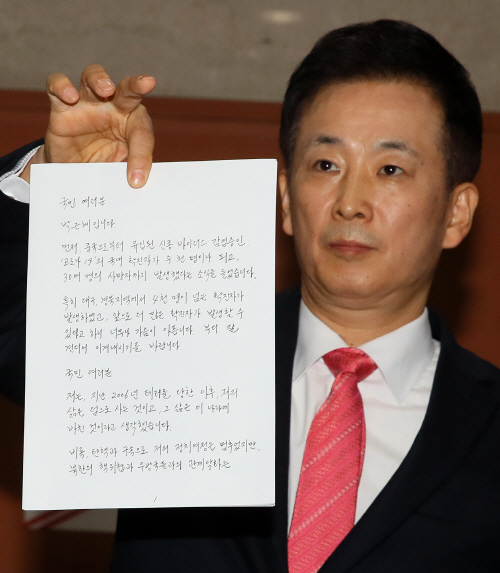 국민 여러분
박근혜입니다.
먼저, 중국으로부터 유입된 신종 바이러스 감염증인
'코로나 19'의 국내 확진자가 수천 명이나 되고
30여 명의 사망자까지 발생했다는 소식을 들었습니다.
특히 대구·경북지역에서 4천 명이 넘는 확진자가
발생하였고, 앞으로 더 많은 확진자가 발생할 수
있다고 하니 너무나 가슴이 아픕니다. 부디 잘
견디어 이겨내시기를 바랍니다.
국민 여러분
저는, 지난 2006년 테러를 당한 이후, 저의
삶은 덤으로 사는 것이고, 그 삶은 이 나라에
바친 것이라고 생각했습니다.
비록, 탄핵과 구속으로 저의 정치여정은 멈추었지만,
북한의 핵위협과 우방국들과의 관계악화는
1